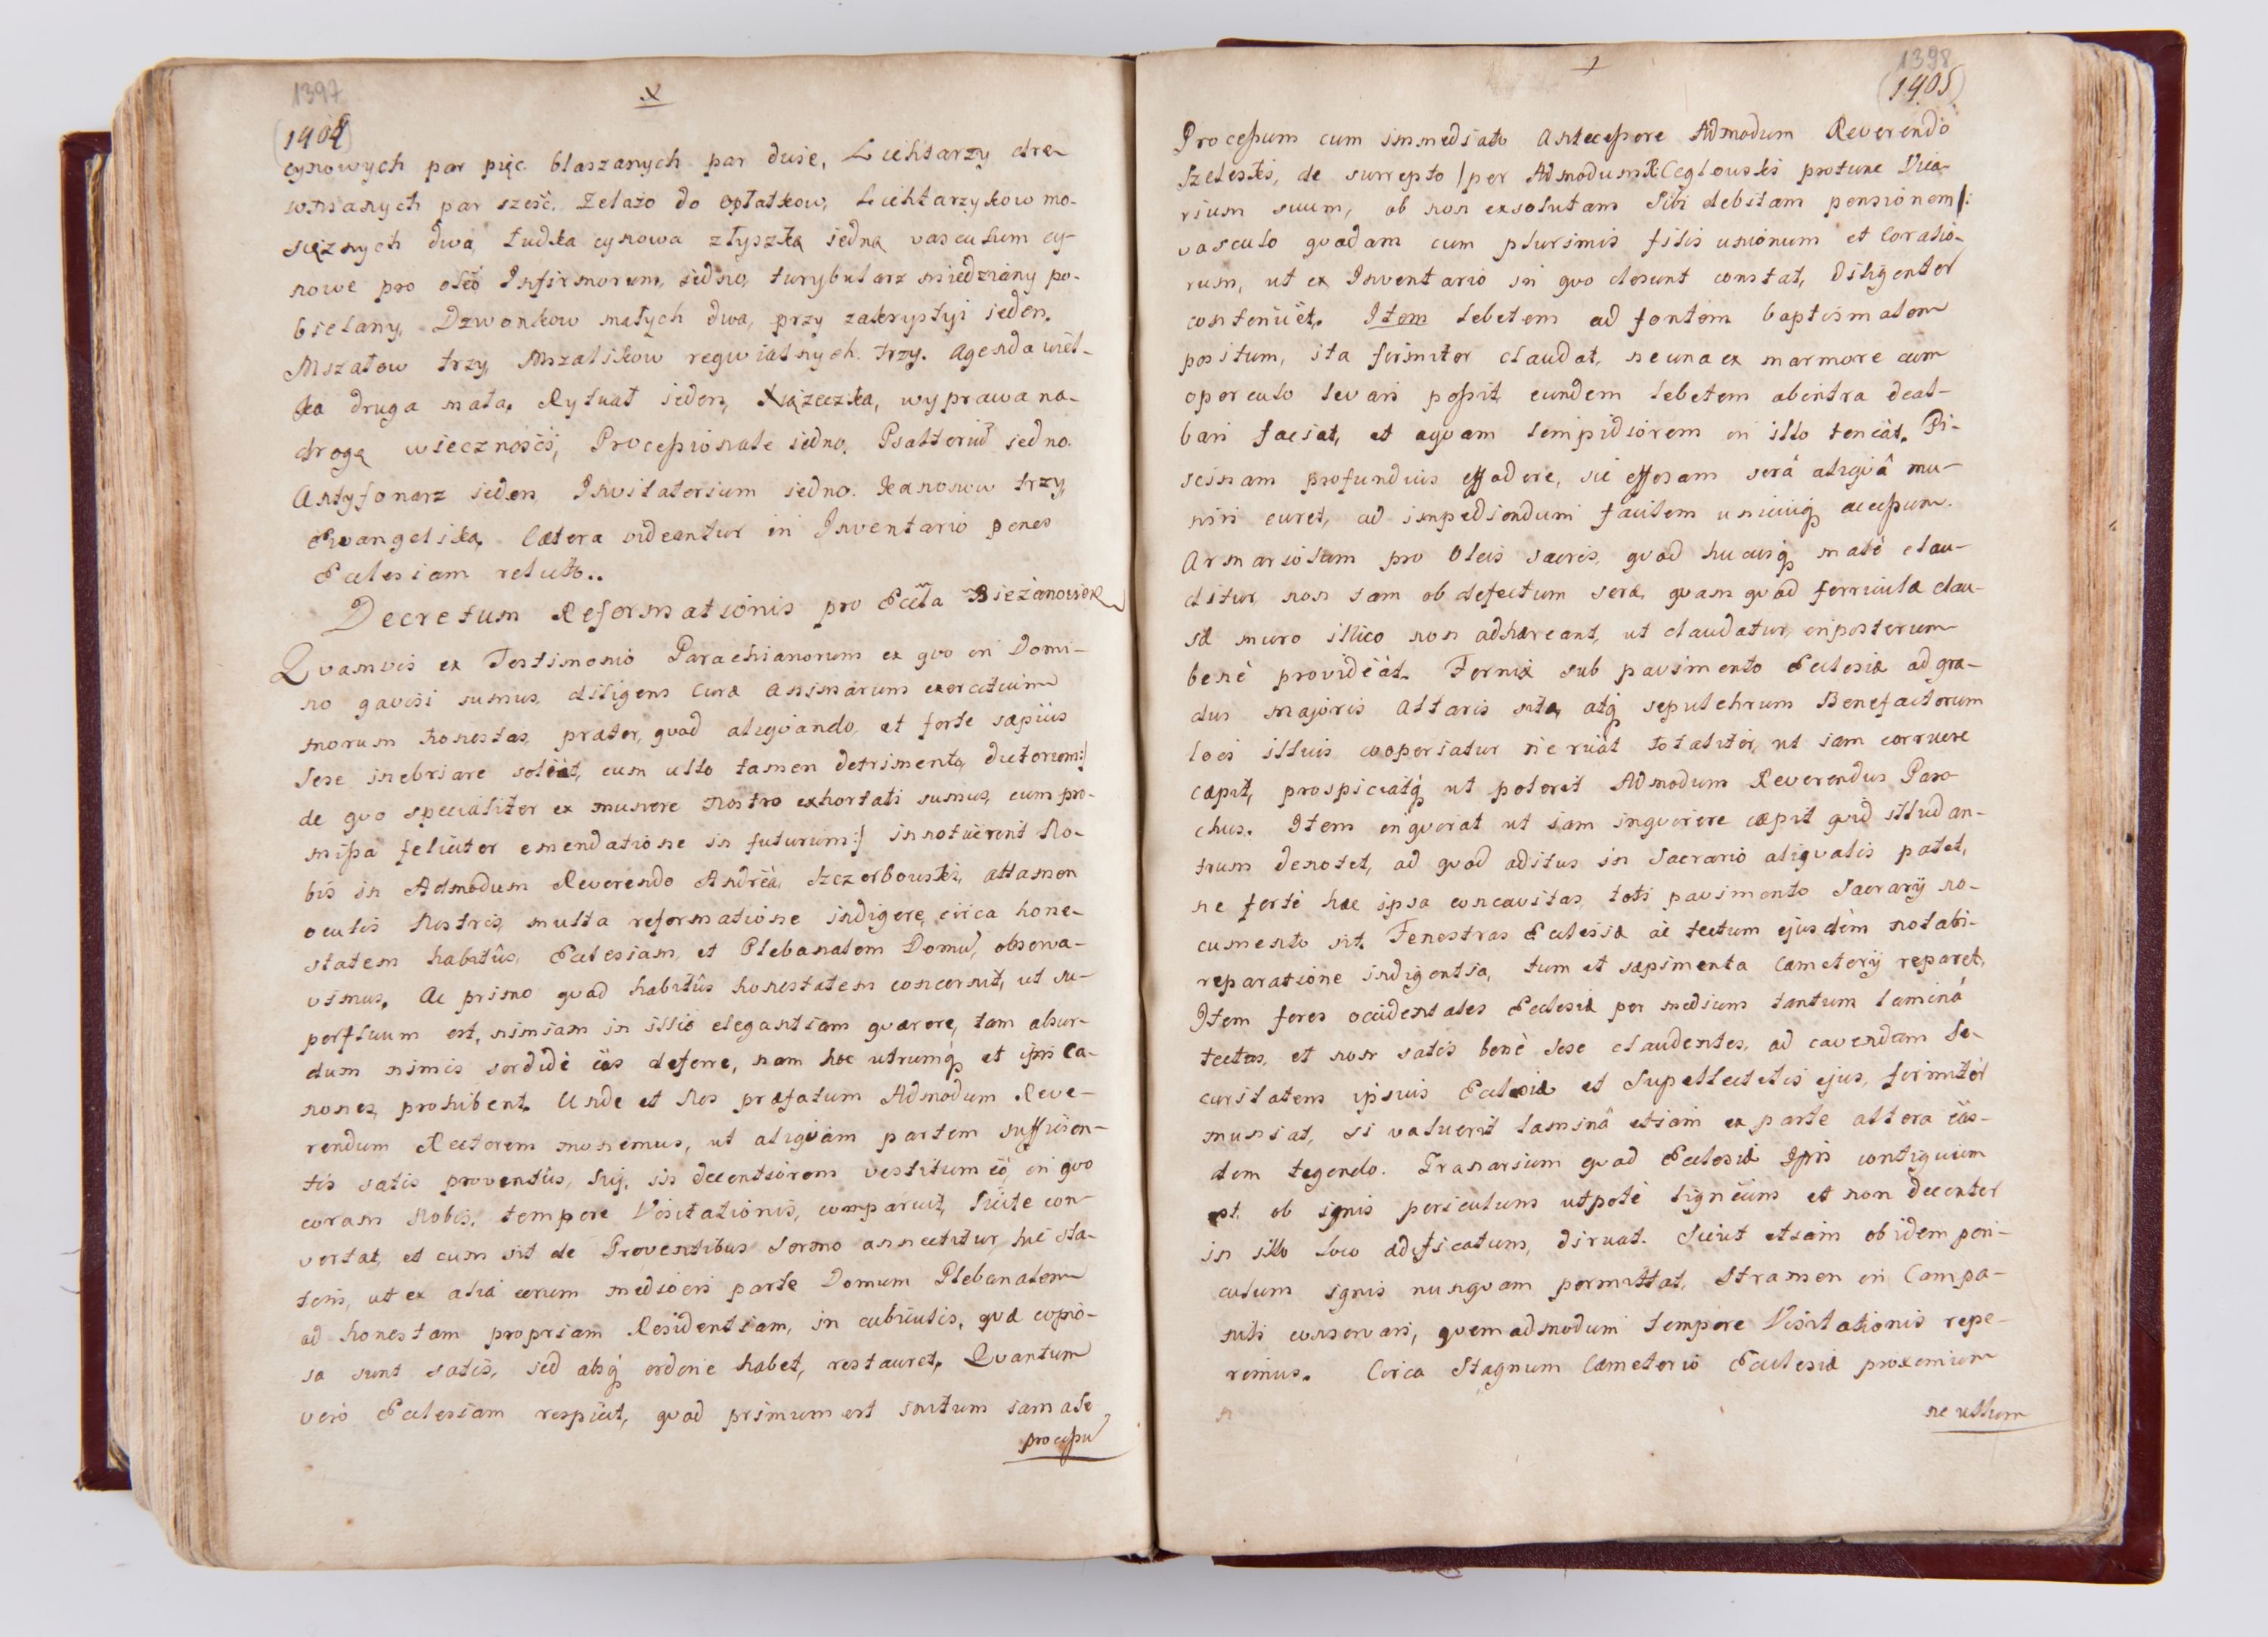 1397
(1404)
X
cynowych par pięc. blaszanych par dwie, Lichtarzy dre-
wnianych par sześć. Zelazo do opłatkow, Lichtarzykow mo-
siężnych dwa, łudka cynowa złyszką iedna vasculum cy-
nowe pro oleo Infirmorum, iedno, turybularz miedziany po-
bielany, Dzwonkow małych dwa, przy zakrystyi ieden.
Mszałow trzy, Mszalikow requialnych trzy. Agenda wiel-
ka druga mała. Rytuał ieden, Xiążeczka, wyprawa na-
drogę wiecznosci, Processionale iedno. Psalteriu iedno.
Antyfonarz ieden, Invitatorium iedno. Kanonow trzy,
Ewangelika, Cætera videantur in Inventario penes
Ecclesiam relicto..
Decretum Reformationis pro Eccla Bieżanoviens
Quamvis ex Testimonio Parochianorum ex quo in Domi-
no gavisi sumus, diligens Curæ Animarum exercitium
morum honestas, præter, quod aliquando, et forte sæpius
sese inebriare soleat, cum ullo tamen detrimento, dictorum:/
de quo specialiter ex munere Nostro exhortati sumus, cum pro-
missa feliciter emendatione in futurum:/ innotuerint No-
bis in Admodum Reverendo Andrea, Szczerbowski, attamen
oculis Nostris, multa reformatione indigere, circa hone-
statem habitûs, Ecclesiam, et Plebanalem Domu, observa-
vimus. Ac primo quod habitûs honestatem concernit, ut su-
perfluum est, nimiam in illis elegantiam quærere, tam absur-
dum nimis sordidè eas deferre, nam hoc utrumq et ipsi Ca-
nones, prohibent. Unde et Nos præfatum Admodum Reve-
rendum Rectorem monemus, ut aliquam partem sufficien-
tis satis proventûs, sui, in decentiorem vestitum eo, in quo
coram Nobis, tempore Visitationis, comparuit, sicite con-
vertat, et cum sit de Proventibus Sermo annectitur, hic sta-
tim, ut ex aliâ eorum mediocri parte Domum Plebanalem
ad honestam propriam Residentiam, in cubiculis, quæ copio-
sa sunt satis, sed absq ordine habet, restauret. Quantum
vero Ecclesiam respicit, quod primum est initum iam a se
processu
1398
(1405)
Processum cum immediato Antecessore Admodum Reverendo
Szeleski, de surrepto /per Admodum R. Ceglowski protunc Vica-
rium suum, ob non exsolutam sibi debitam pensionem/:
vasculo quodam cum plurimis filis unionum et Coralio-
rum, ut ex Inventario in quo desunt constat, diligenter
continuet. Item lebetem ad fontem baptismalem
positum, ita firmiter claudat, ne una ex marmore cum
operculo levari possit, eundem lebetem abintra deal-
bari faciat, et aquam limpidiorem in illo teneat. Pi-
scinam profundius effodere, sic effosam serâ aliquâ mu-
niri curet, ad impediendum facilem unicuiq accessum.
Armariolum pro Oleis sacris, quod hucusq malè clau-
ditur, non tam ob defectum seræ, quam quod ferricula clau-
sa muro illico non adhæreant, ut claudatur, in posterum
benè provideat. Fornix sub pavimento Ecclesiæ ad gra-
dus majoris Altaris sita, atq sepulchrum Benefactorum
loci illius cooperiatur ne ruat totaliter, ut iam corruere
cæpit, prospiciatq ut poterit Admodum Reverendus Paro-
chus. Item inquirat ut iam inquirere cæpit quid illud an-
trum denotet, ad quod aditus in Sacrario aliqualis patet,
ne fortè hæc ipsa concavitas, toti pavimento Sacrarij no-
cumento sit. Fenestras Ecclesiæ ac tectum ejusdem notabi-
reparatione indigentia, tum et sæpimenta Cæmeterij reparet,
Item fores occidentales Ecclesiæ per medium tantum laminâ
tectas, et non satis benè sese claudentes, ad cavendam se-
curitatem ipsius Ecclesiæ et Supellectilis ejus, firmiter
muniat, si valuerit laminâ etiam ex parte altera eas-
dem tegendo. Granarium quod Ecclesiæ Ipsi contiguum
est, ob ignis periculum utpotè ligneum et non decenter
in illo loco ædificatum, diruat. Sicut etiam ob idem peri-
culum ignis nunquam permittat, stramen in Campa-
nili conservari, quemadmodum tempore Visitationis repe-
rimus. Circa Stagnum Cæmeterio Ecclesiæ proximum
ne ullum